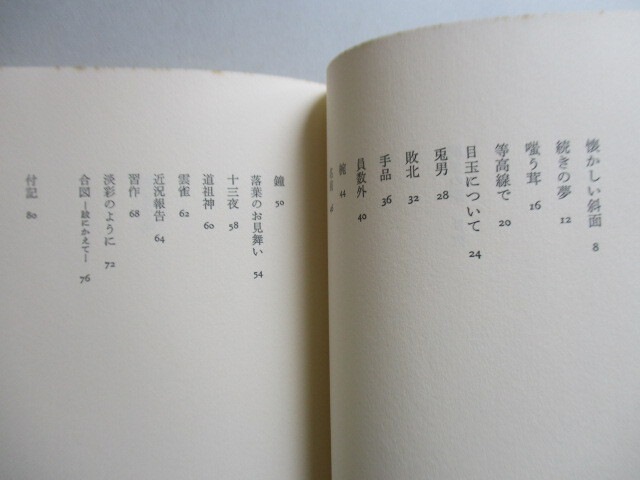 懐かしい斜面 8
続きの夢 12
嗤う茸 16
等高線で 20
目玉について 24
兎男 28
敗北 32
手品 36
員数外 40
44
鐘 50
落葉のお見舞い 54
十三夜 58
道祖神 60
雲雀 62
近況報告 64
習作 68
淡彩のように 72
合図 ―跋にかえて― 76
付記 80